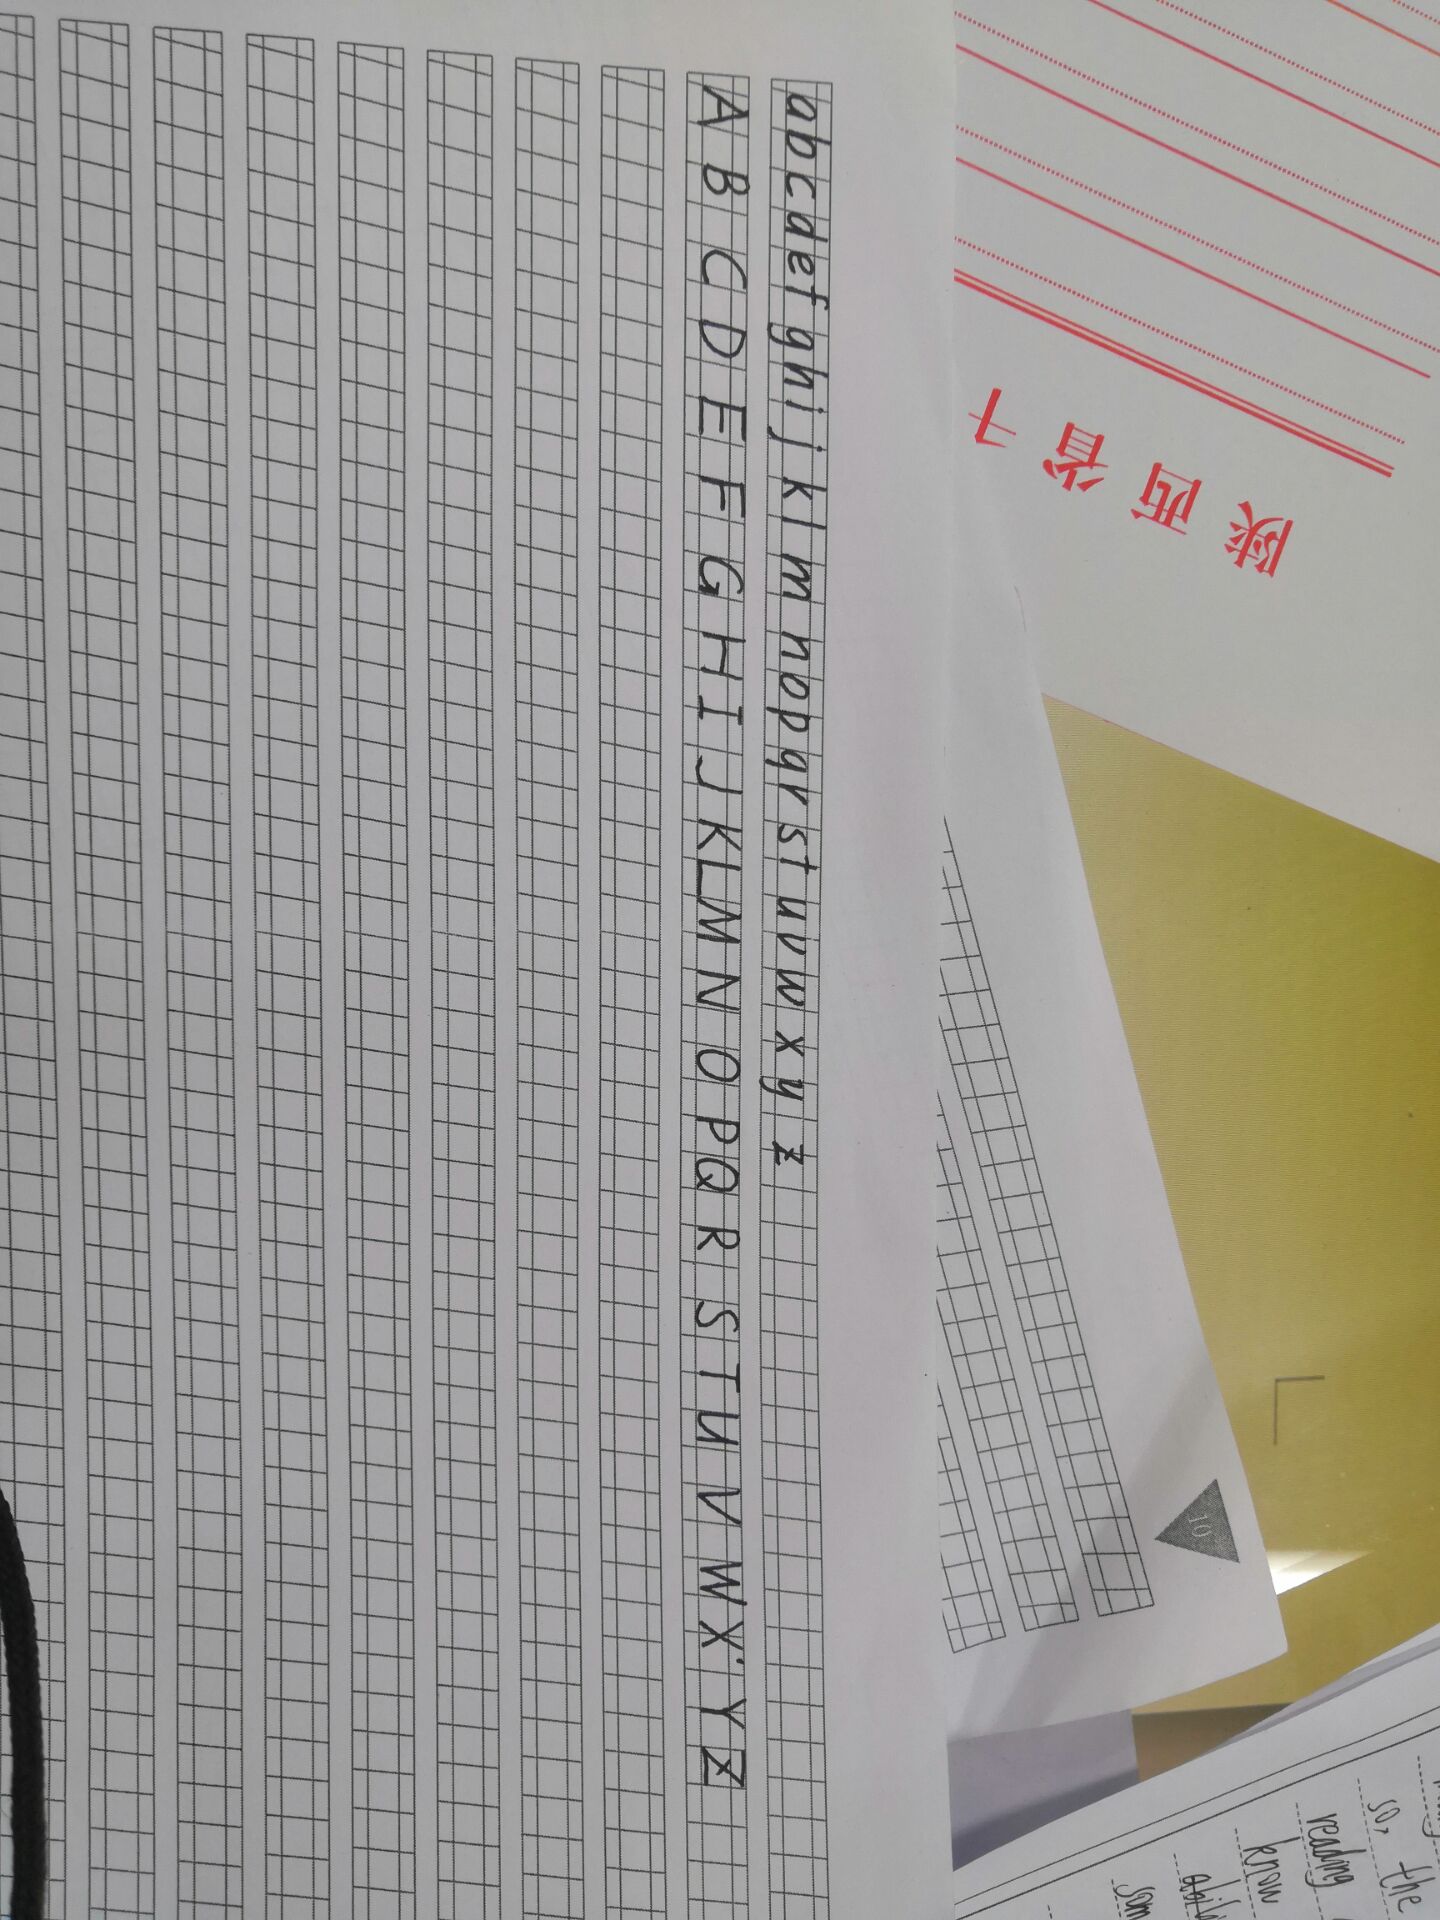 abcdefghijklmnopqrstuvwxyz
ABCDEFGHIJKLMNOPQRSTUVWXYZ
陕西省
10
so, the
reading
know